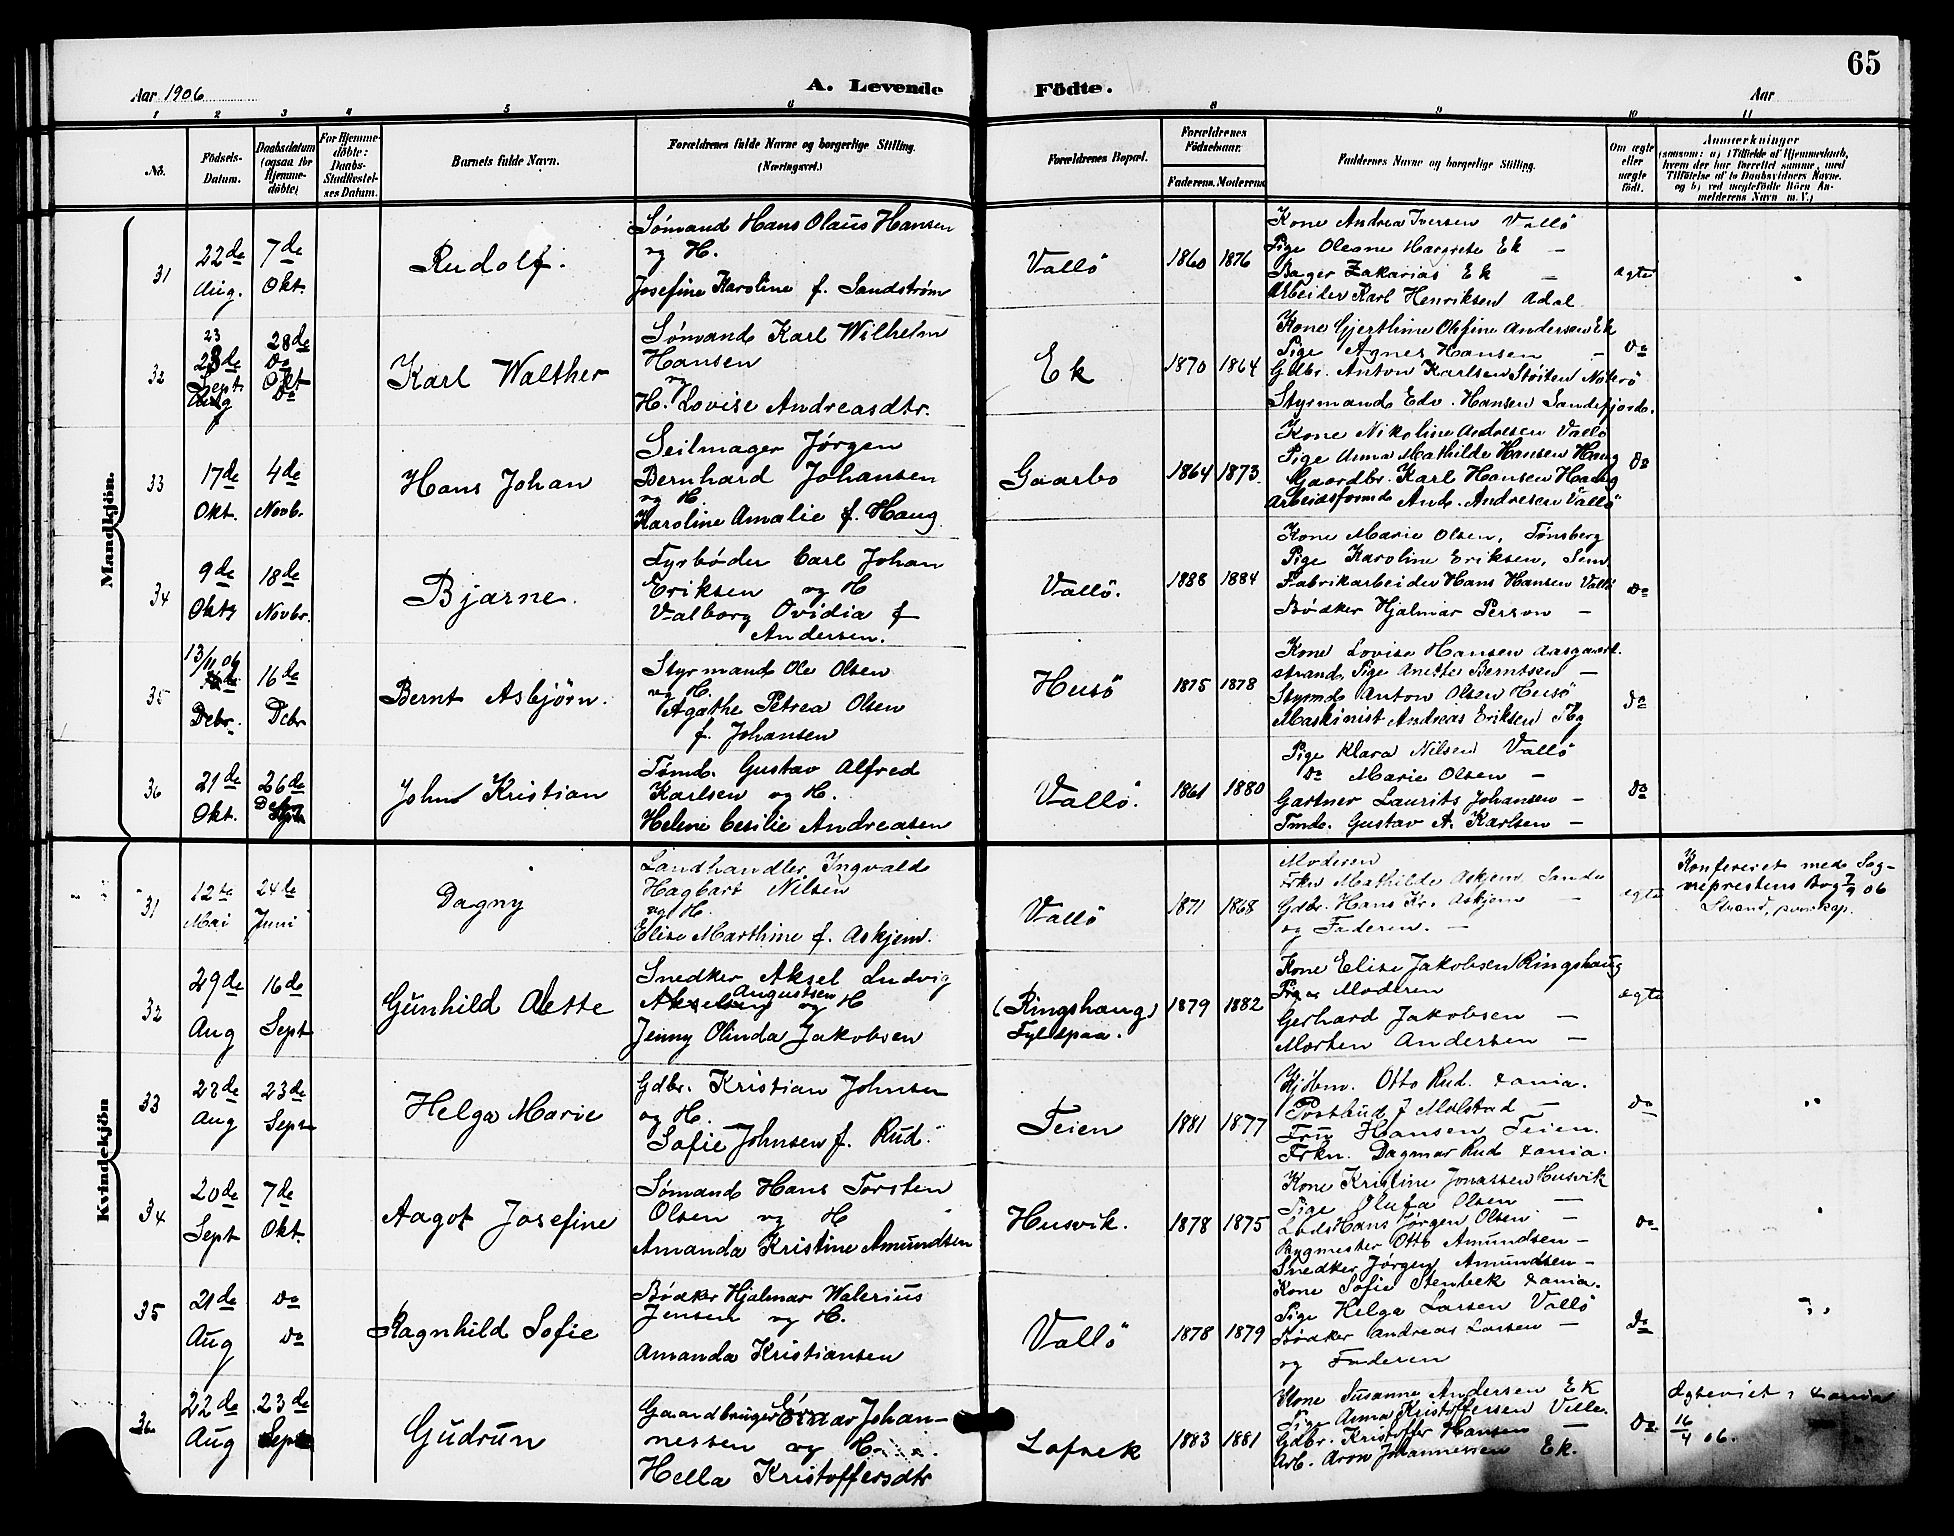 65
Aar 1906
A. Levende Födte.
Aar
1 2 3 4 5 6 8 9 10 11
No.
Födsels-Datum.
Daabsdatum (ogsaa for Hjemmedöbte)
For Hjemmedöbte: Daabs-Stadfestelses Datum.
Barnets fulde Navn.
Forældrenes fulde Navne og borgerlige Stilling. (Næringsvei.)
Forældrenes Bopæl.
Forældrenes Födselsaar.
Faderens. Moderens.
Faddernes Navne og borgerlige Stilling.
Om ægte eller uægte födt.
Anmærkninger
(saasom: a) i Tilfælde af Hjemmedaab, hvem der har forrettet samme, med Tilföielse af to Daabsvidners Navne, og b) ved uægtefödte Börn Anmelderens Navn m. V.)
Mandkjön.
31
22de Aug.
7de Okt.
Rudolf.
Sømand Hans Olaus Hansen
og H.
Josefine Karoline f. Sandstrøm
Vallö
1860 1876
Kone Andrea Iversen Vallö
Pige Oleane Margrete Ek –
Bager Zakarias Ek –
Arbeider Karl Henriksen Adal
ægte
32
23
Sept.
28de
Okt
Karl Walther
Sømand Karl Wilhelm
Hansen
og
H. Lovise Andreasdtr.
Ek
1870 1864
Kone Gjerthine Olefine Andersen Ek
Pige Agnes Hansen –
Gdbr. Anton Karlsen Støiten Nøterö
Styrmand Edv. Hansen Sandefjord.
do
33
17de Okt.
4de Novbr.
Hans Johan
Seilmager Jørgen
Bernhard Johansen
og H.
Karoline Amalie f. Haug
Gaarbo
1864 1873
Kone Nikoline Andresen Vallö
Pige Anna Mathilde Hansen Haug
Gaardbr. Karl Hansen Haug
Arbeidsformd And. Andresen Vallö
do
34
9de Okt
18de Novbr.
Bjarne.
Fyrbøder Carl Johan
Eriksen og H
Valborg Ovidia f
Andersen.
Vallö.
1888 1884
Kone Marie Olsen, Tønsberg
Pige Karoline Eriksen, Sem
Fabrikarbeider Hans Hansen Vallö
Bødker Hjalmar Person –
do
35
13/11 06
Debr.
16de Debr
Bernt Asbjörn.
Styrmand Ole Olsen
og H.
Agathe Petrea Olsen
f. Johansen
Husö
1875 1878
Kone Lovise Hansen Aasgaard-
strand, Pige Anette Berntsen –
Styrmd Anton Olsen Husö
Maskinist Andreas Eriksen Tbg
do
36
21de Okt.
26de
John Kristian
Tømd. Gustav Alfred
Karlsen og H.
Helene Cesilie Andreasen
Vallö.
1861 1880
Pige Klara Nilsen Vallö
do Marie Olsen –
Gartner Laurits Johansen –
Tmd. Gustav A. Karlsen –
do
Kvindekjön
31
12te Mai
24de Juni
Dagny
Landhandler Ingvald
Hagbart Nilsen
og H.
Elise Marthine f. Askjem.
Vallö
1871 1868
Moderen
Frkn Mathilde Askjem Sande
Gdbr. Hans Kr. Askjem –
og Faderen. –
ægte
Konfereret med Sog-
neprestens Bog 7/9 06
Strand,
32
29de Aug
16de Sept
Gunhild Alette
Snedker Aksel Ludvig
Augustsen
og H
Jenny Olinda Jakobsen
(Ringshaug)
Fyldpaa.
1879 1882
Kone Elise Jakobsen Ringshaug
Moderen
Gerhard Jakobsen –
Morten Andersen –
ægte
33
28de Aug
23de Sept
Helga Marie
Gdbr. Kristian Johnsen
og H.
Sofie Johnsen f. Rud.
Teien
1881 1877
Kjöbm. Otto Rud. Xania.
Postbud J Mølstad –
Fru Hansen Teien.
Frkn. Dagmar Rud Xania.
do
34
20de Sept
7de Okt.
Aagot Josefine
Sømand Hans Torsten
Olsen og H
Amanda Kristine Amundsen
Husvik.
1878 1875
Kone Kristine Jonassen Husvik
Pige Olufa Olsen –
Lods Hans Jørgen Olsen –
Bygmester Otto Amundsen –
Snedker Jørgen Amundsen –
do
35
21de Aug
do
do
Ragnhild Sofie
Bødker Hjalmar Walerius
Jensen og H.
Amanda Kristiansen
Vallö
1878 1879
Kone Sofie Stenbek Xania.
Pige Helga Larsen Vallö
Bødker Andreas Larsen –
og Faderen
do
36
22de Aug
23de Sept
Gudrun
Gaardbruger Einar Johan-
nessen og H.
Hella Kristoffersdtr
Lofsek
1883 1881
Kone Susanne Andersen Ek
Pige Anna Kristoffersen
Gdbr. Kristoffer Hansen –
Arb. Aron Johannessen Ek.
do
Ægteviet i Xania
16/4 06.